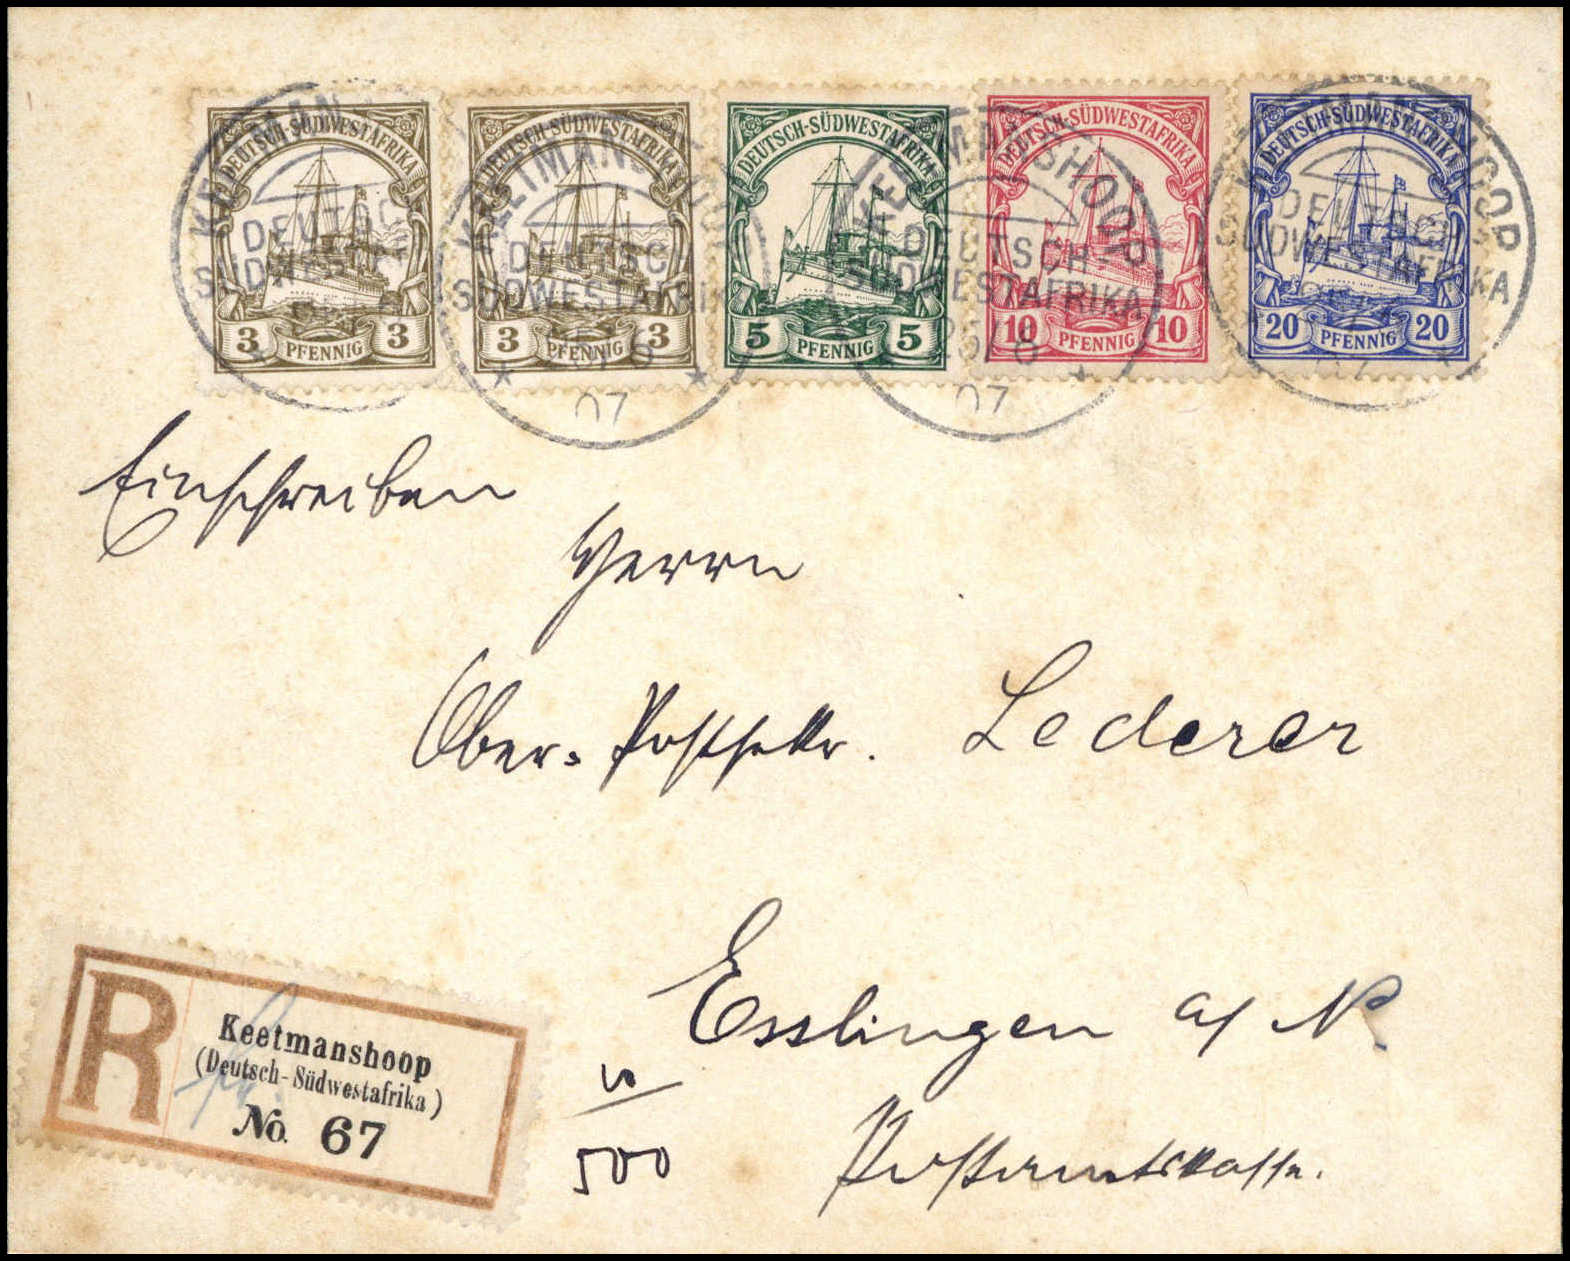 DEUTSCH-SÜDWESTAFRIKA
3 PFENNIG 3
DEUTSCH-SÜDWESTAFRIKA
3 PFENNIG 3
DEUTSCH-SÜDWESTAFRIKA
5 PFENNIG 5
DEUTSCH-SÜDWESTAFRIKA
10 PFENNIG 10
DEUTSCH-SÜDWESTAFRIKA
20 PFENNIG 20
KEETMANSHOOP
DEUTSCH-
SÜDWESTAFRIKA
07
KEETMANSHOOP
DEUTSCH-
SÜDWESTAFRIKA
07
Einschreiben
Herrn
Ober-Postsekr. Lederer
Esslingen a/N
Postamtskasse.
500
R
Keetmanshoop
(Deutsch-Südwestafrika)
No. 67